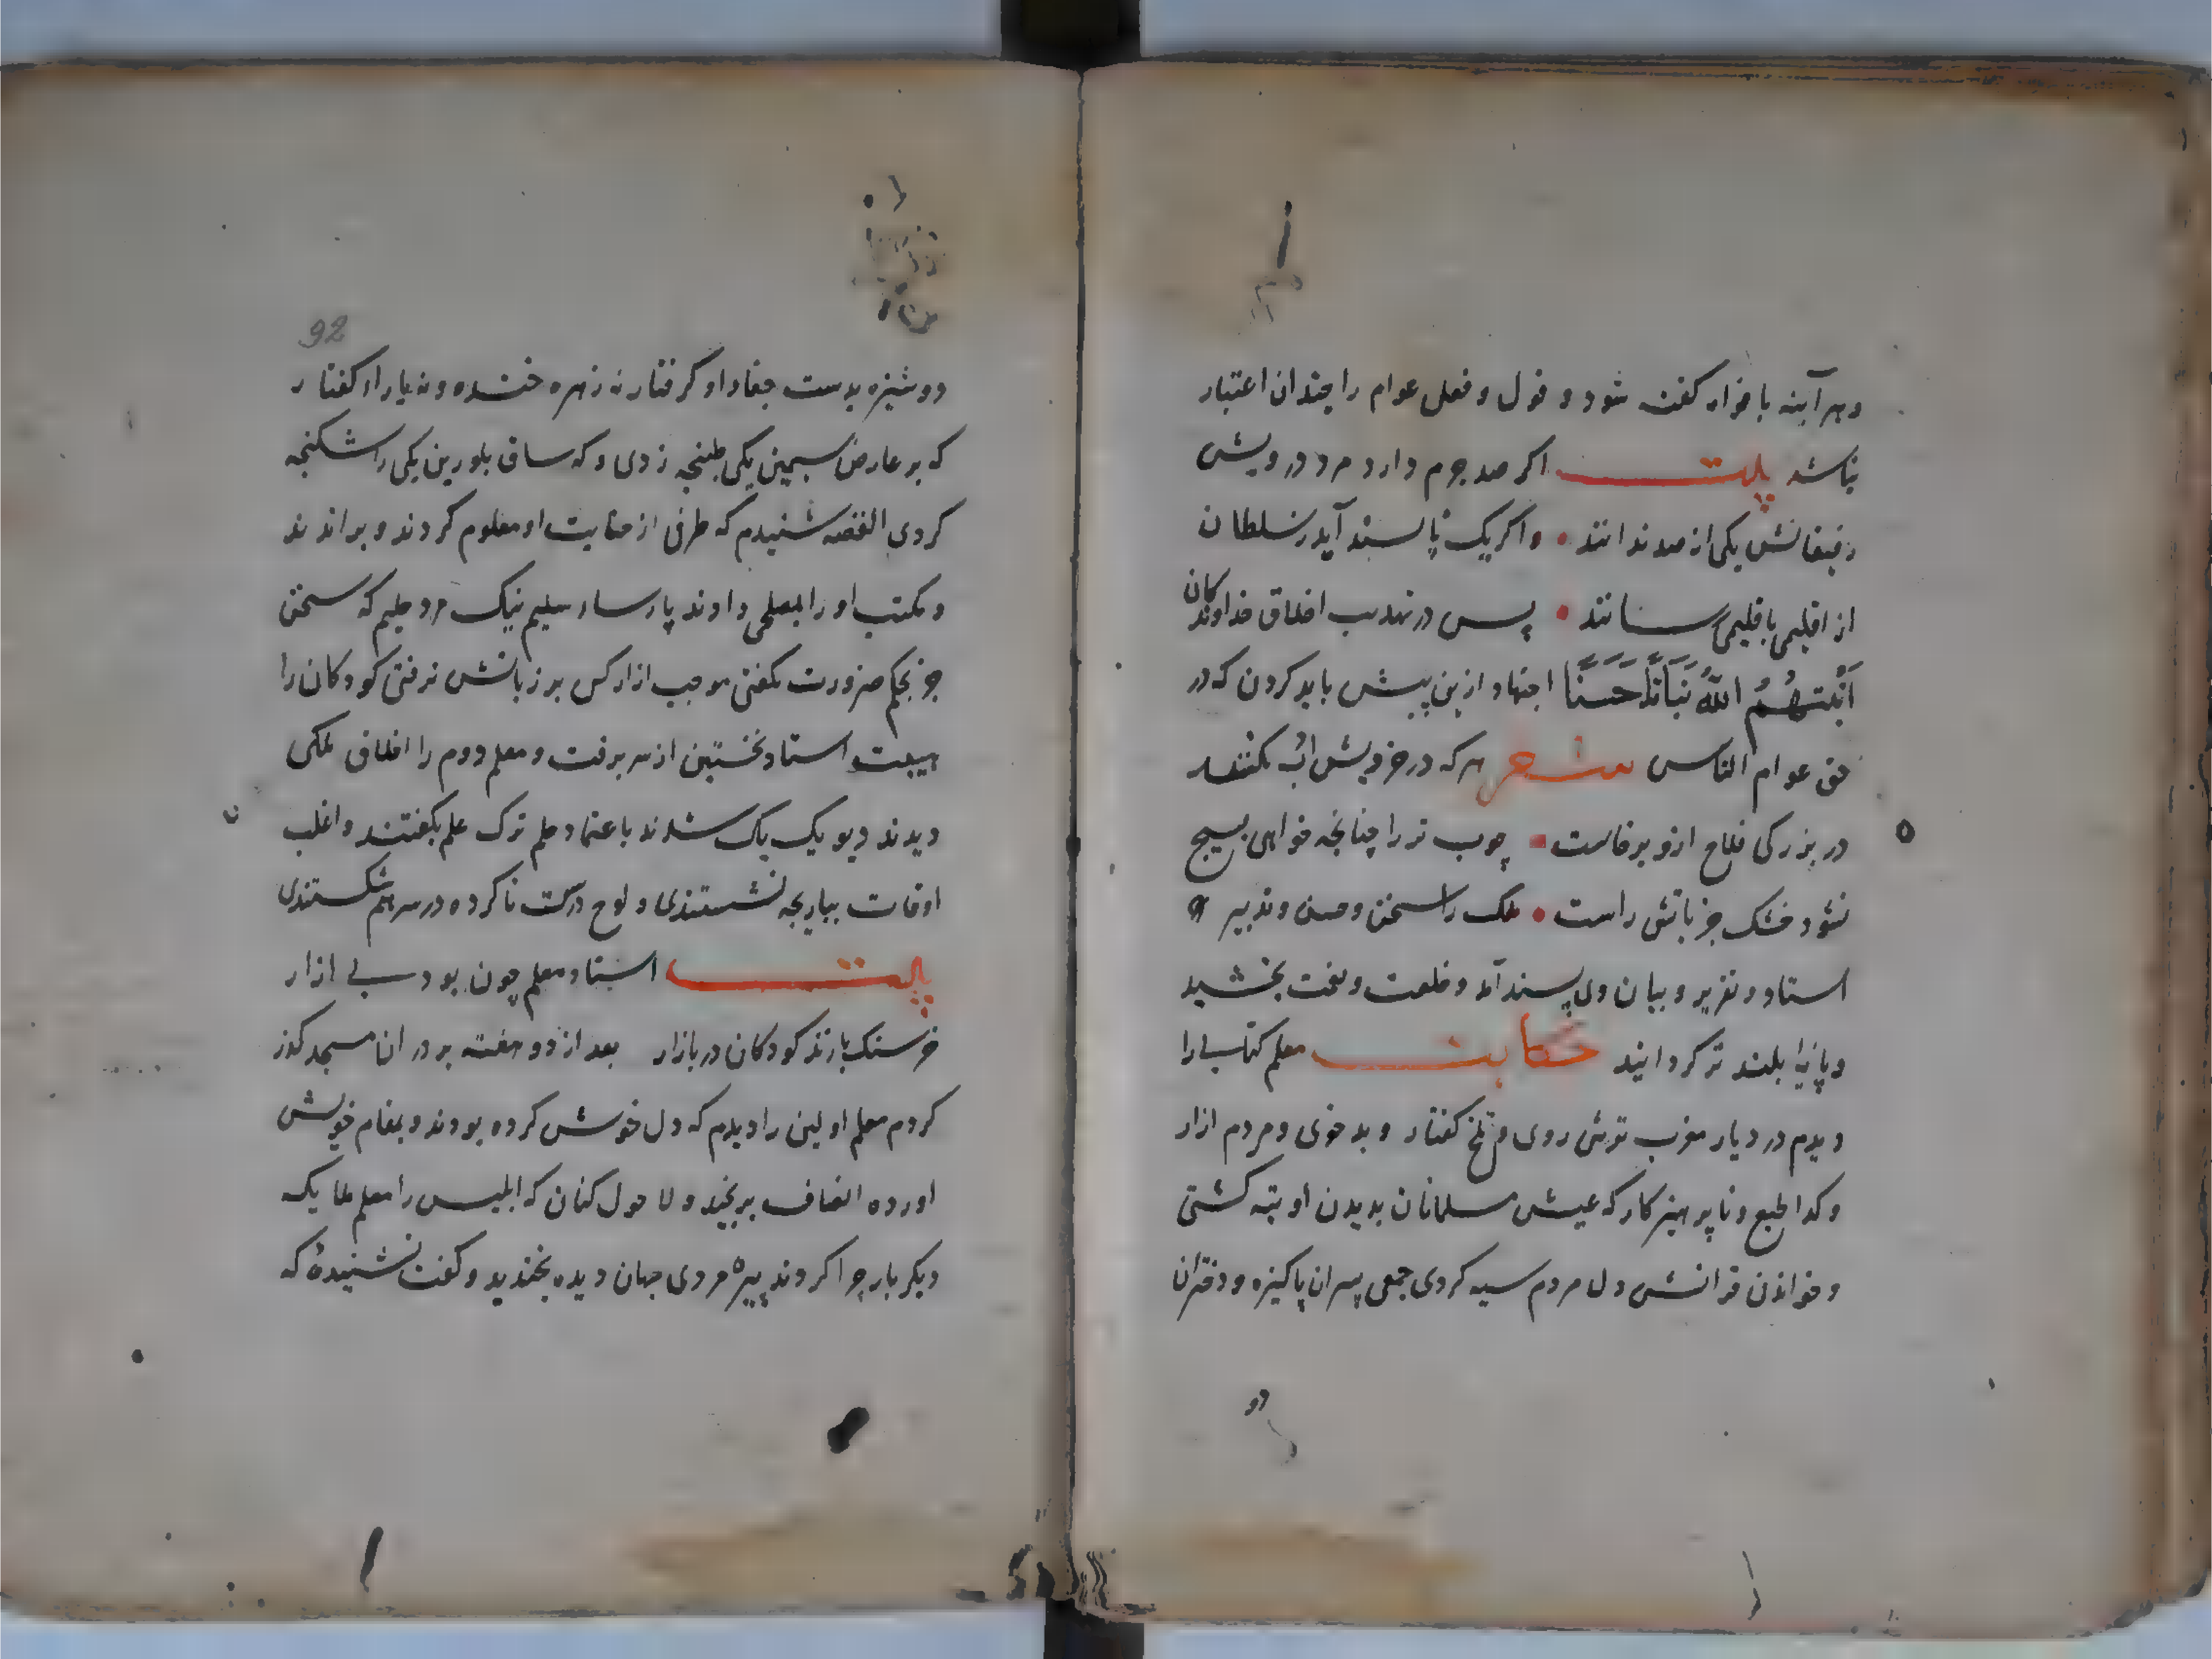 وهر آینه بافواه کفته شود و قول و فعل عوام را چندان اعتبار
نباشد بیت اکر صد جرم دارد مرد درویش
رفیقانش یکی از صد ندانند • و اکر یک ناپسند آید ز سلطان
از اقلیمی باقلیمی رسانند • پس در تهذیب اخلاق خداوندکان
اَنْبَتَهُمُ اللّٰهُ نَبَاتًا حَسَنًا اجتهاد ازین پیش باید کردن که در
حق عوام الناس شعر هر که در خردیش ادب نکنند
در بزرکی فلاح ازو برخاست • چوب تر را چنانچه خواهی پیچ
نشود خشک جز باتش راست • ملک را سخن و حسن و تدبیر
استاد و تقریر و بیان وی پسند آمد و خلعت و نعمت بخشید
و پایه بلند تر کردانید حکایت معلم کتابی را
دیدم در دیار مغرب ترش روی و تلخ کفتار و بد خوی و مردم ازار
و کدا طبع و ناپرهیزکار که عیش مسلمانان بدیدن او تبه کشتی
و خواندن قرانش دل مردم سیه کردی جمعی پسران پاکیزه و دختران
92
دوشیزه بدست جفاء او کرفتار نه زهره خنده و نه یارای کفتار
که بر عارض سیمین یکی طپنچه زدی و که ساق بلورین یکی را شکنجه
کردی القصه شنیدم که طرفی از خیانت او معلوم کردند و براندند
و مکتب او را بمصلحی دادند پارساء سلیم نیک مرد حلیم که سخن
جز بحکم ضرورت نکفتی موجب ازار کس بر زبانش نرفتی کودکان را
هیبت استاد نخستین از سر برفت و معلم دوم را اخلاق ملکی
دیدند دیو یک یک شدند باعتماد حلم ترک علم بکفتند و اغلب
اوقات ببازیچه نشستندی و لوح درست ناکرده در سر هم شکستندی
بیت استاد معلم چون بود بی ازار
خرسنک بازند کودکان در بازار بعد از دو هفته بر در ان مسجد کذر
کردم معلم اولین را دیدم که دل خوش کرده بودند و بمقام خویش
اورده انصاف برنجیدم و لا حول کنان که ابلیس را معلم ملایک
دیکر بار چرا کردند پیره مردی جهان دیده بخندید و کفت نشنیدهٔ که
دو